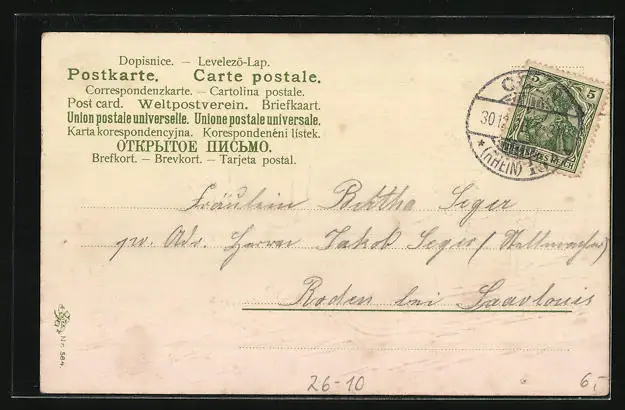 Dopisnice. – Levelező-Lap.
Postkarte. Carte postale.
Correspondenzkarte. – Cartolina postale.
Post card. Weltpostverein. Briefkaart.
Union postale universelle. Unione postale universale.
Karta korespondencyjna. Korespondenční lístek.
ОТКРЫТОЕ ПИСЬМО.
Brefkort. – Brevkort. – Tarjeta postal.
5 5
30.12
*(RHEIN)
REICH
Fräulein Bertha Seger
pr. Adr. Herrn Jakob Seger (Stellmacher)
Roden bei Saarlouis
Nr. 584
26-10
6,-